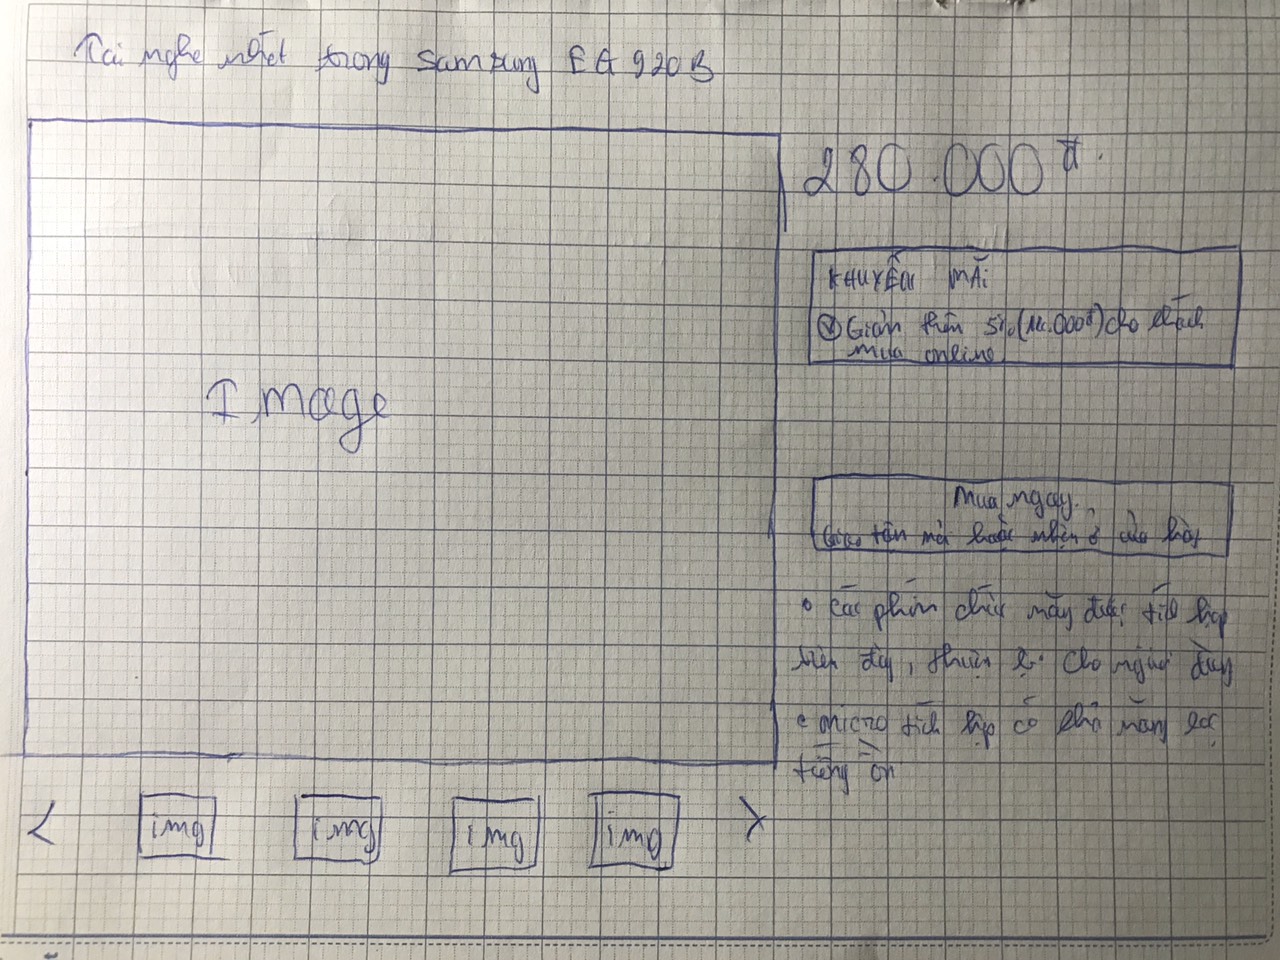 Tai nghe nhét trong Samsung EG 920B
280.000đ
KHUYẾN MÃi
Giảm thêm 5% (14.000đ) cho khách
mua online
Image
Mua ngay.
Giao tận nơi hoặc nhận ở cửa hàng
• các phím chức năng được tích hợp
trên dây, thuận lợi cho người dùng
• micro tích hợp có khả năng lọc
tiếng ồn
< img img img img >